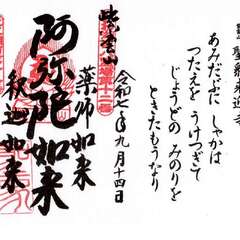 聖衆来迎寺
あみだぶに しゃかは
つたえを うけつぎて
じょうどの みのりを
ときたもうなり
令和七年九月十四日
紫雲山
薬師如来
阿弥陀如来
釈迦如来